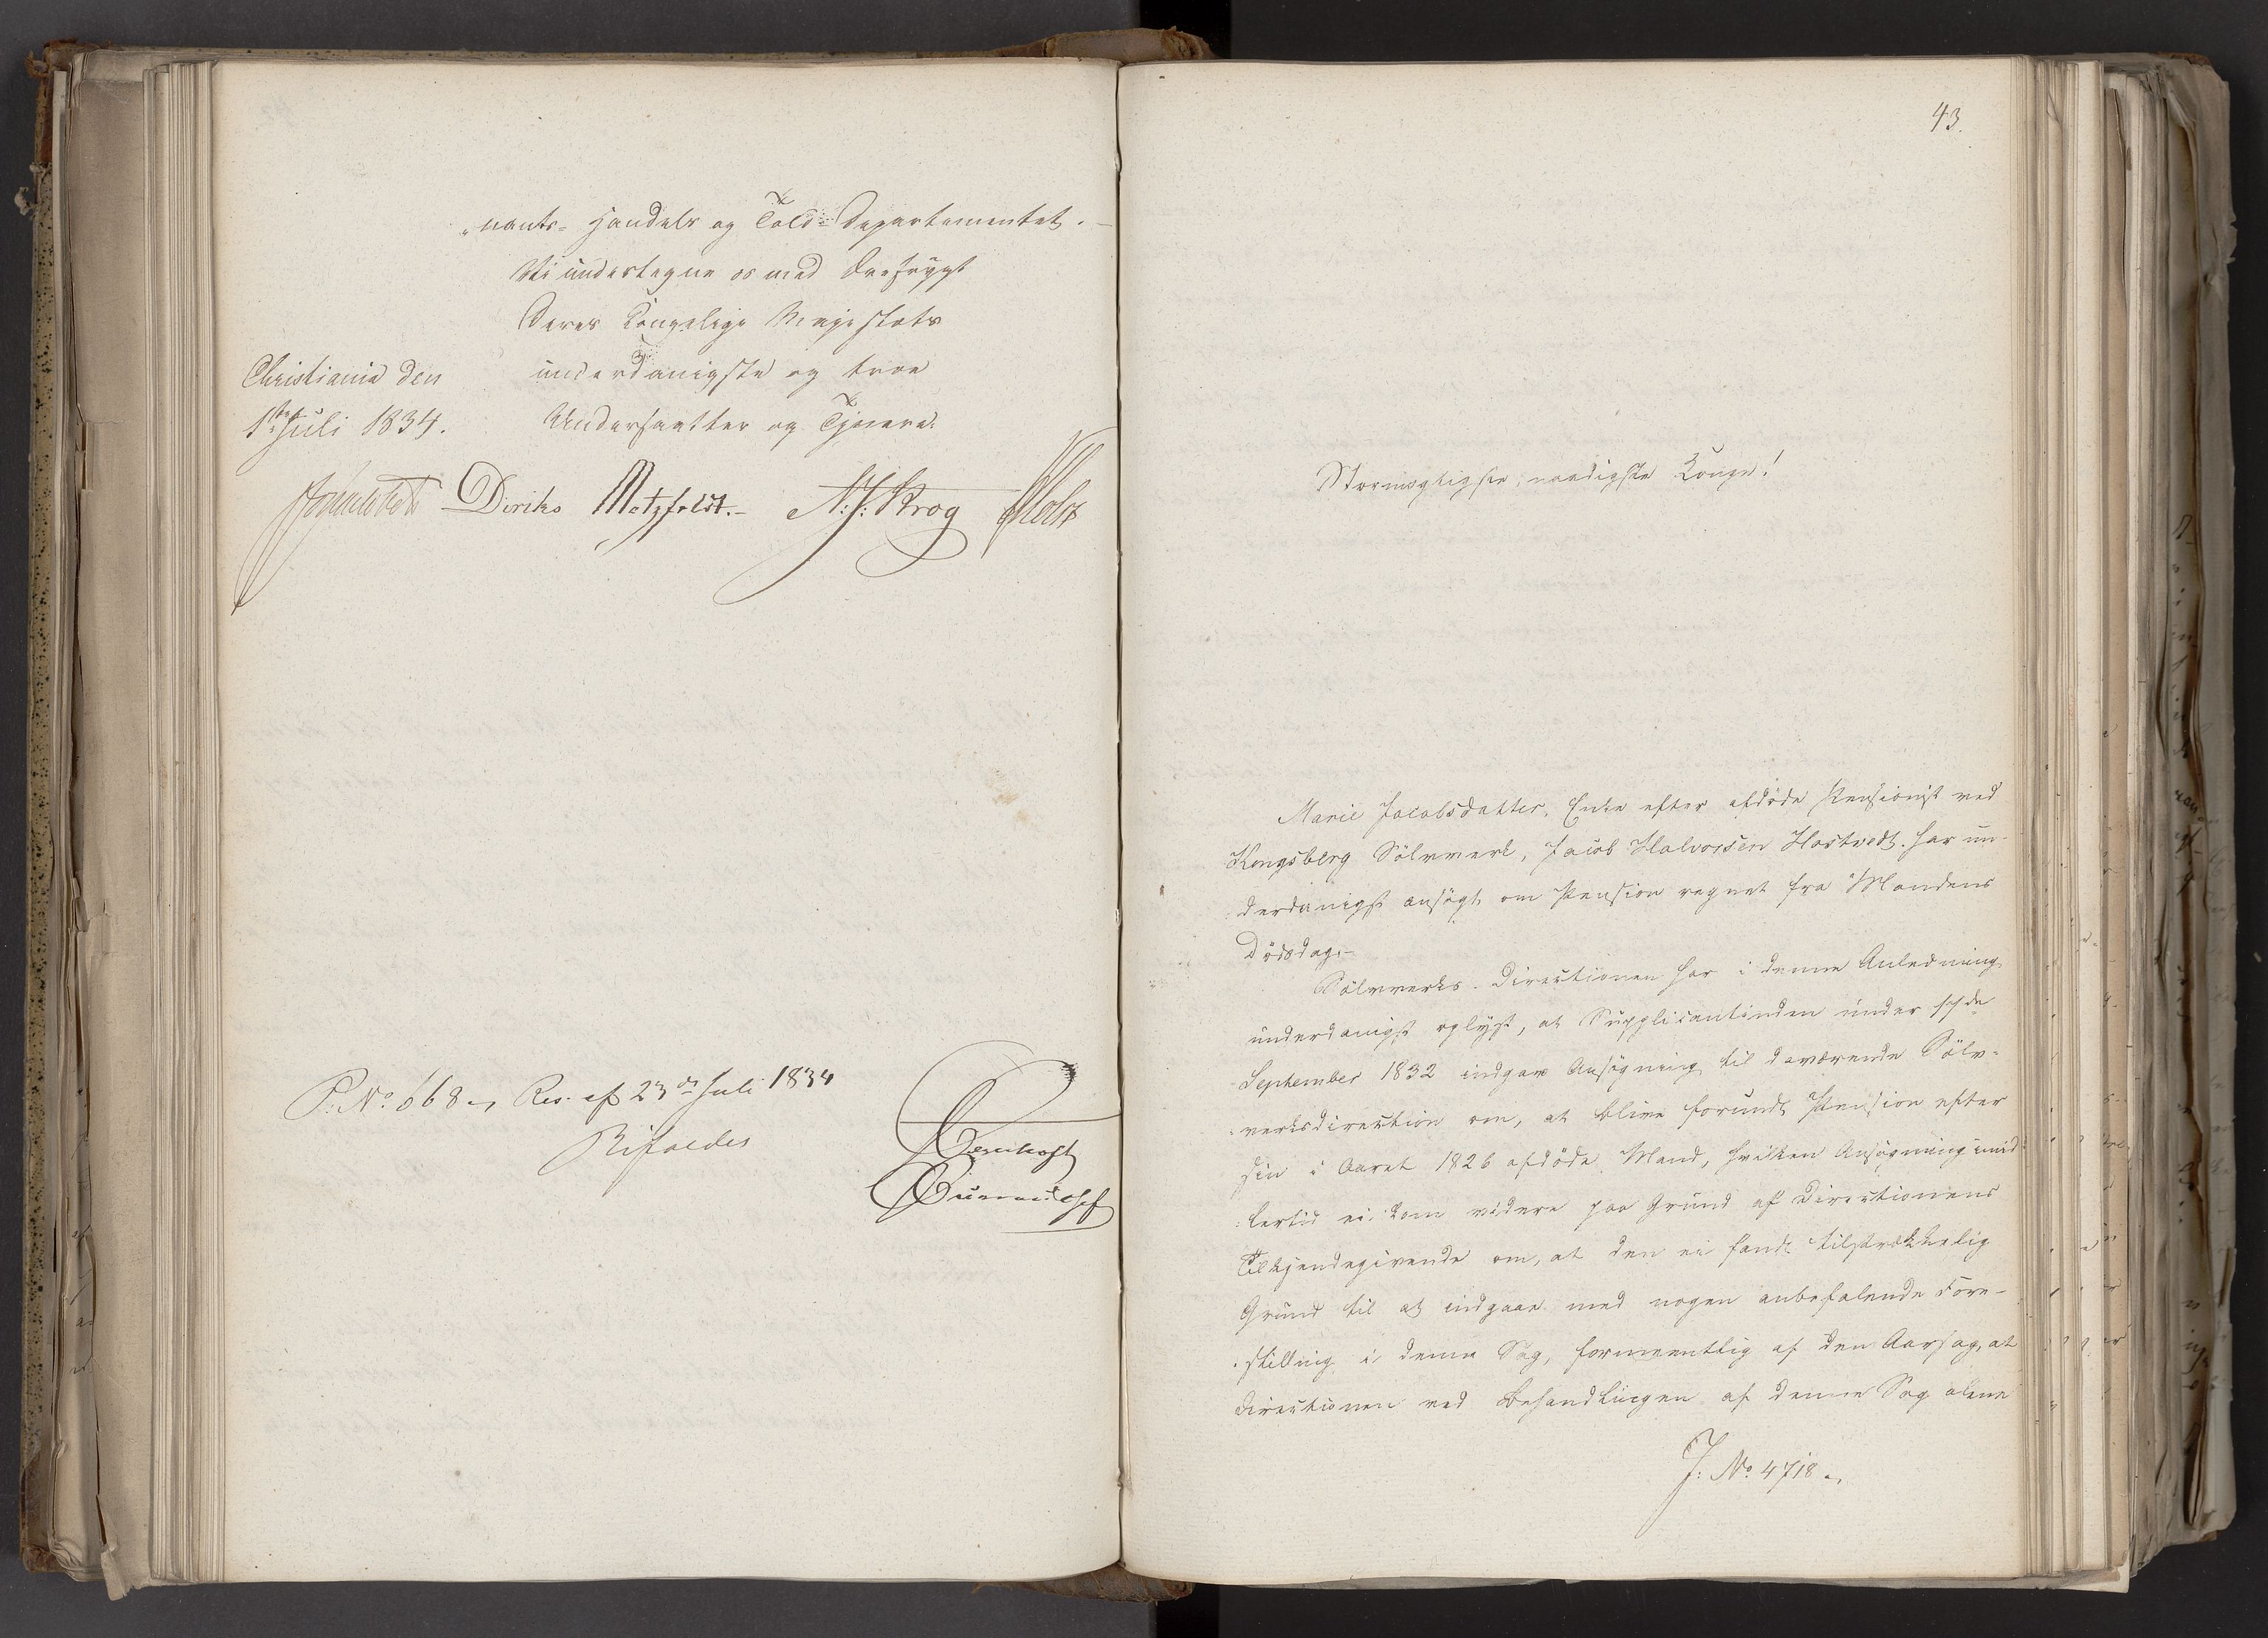 „nants- Handels og Told-Departementet. –
Vi undertegne os med Ærefrygt
Deres Kongelige Majestæts
underdanigste og troe
Christiania den
1ste Juli 1834.
Undersaatter og Tjenere.
Diriks Motzfeldt.- N:J: Krog Holst
P: No 668 Res. af 23de Juli 1834
Bifaldes
43.
Stormægtigste, naadigste Konge!
Marie Jacobsdatter, Enke efter afdøde Pensionist ved
Kongsberg Sölvverk, Jacob Halvorsen Hostvedt. har un-
derdanigst ansøgt om Pension regnet fra Mandens
Dödsdag.-
Sölvverks-Directionen har i denne Anledning
underdanigst oplyst, at Supplicantinden under
September 1832 indgav Ansögning til daværende Sölv-
verksdirection om, at blive forundt Pension efter
sin i Aaret 1826 afdöde Mand, hvilken Ansögning imid-
lertid ei kom videre paa Grund af Directionens
Tilkjendegivende om, at den ei fandt tilstrækkelig
Grund til at indgaae med nogen anbefalende Fore-
stilling i denne Sag, formeentlig af den Aarsag, at
Directionen ved Behandlingen af denne Sag alene
J: No 4718